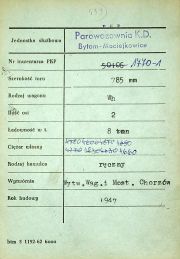 PKP
Jednostka służbowa
Parowozownia K.D.
Bytom-Maciejkowice
Nr inwentarza PKP 1770-1
Szerokość toru 785 mm
Rodzaj wagonu Wh
Ilość osi 2
Ładowność w t. 8 ton
Ciężar własny
Rodzaj hamulca ręczny
Wytwórnia Wytw.Wag.i Most. Chorzów
Rok budowy 1947